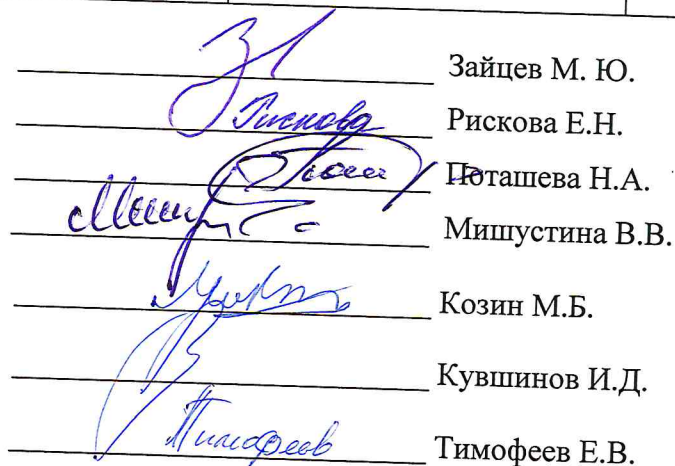 Зайцев М. Ю.
Рискова Рискова Е.Н.
Поташева Н.А.
Мишустина В.В.
Козин М.Б.
Кувшинов И.Д.
Тимофеев Тимофеев Е.В.